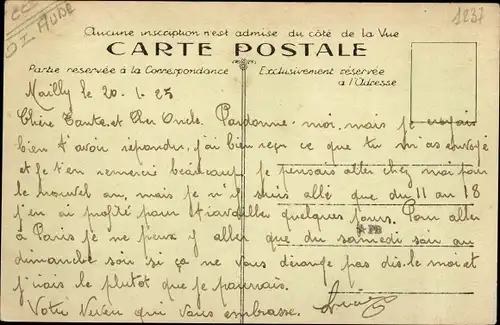 AUDE
1237
Aucune inscription n'est admise du côté de la Vue
CARTE POSTALE
Partie réservée à la Correspondance
Exclusivement réservée
à l'Adresse
Mailly le 20-1-25
Chère Tante et Cher Oncle. Pardonne-moi, mais je croyais
bien t'avoir répondu, j'ai bien reçu ce que tu m'as envoyé
et je t'en remercie beaucoup je pensais aller chez moi pour
le nouvel an, mais je n'y suis allé que du 11 au 18
j'en ai profité pour travailler quelques jours. Pour aller
à Paris je ne peux y aller que du samedi soir au
PB
dimanche soir si ça ne vous dérange pas dis-le moi et
j'irais le plutôt que je pourrais.
Votre Neveu qui vous embrasse.